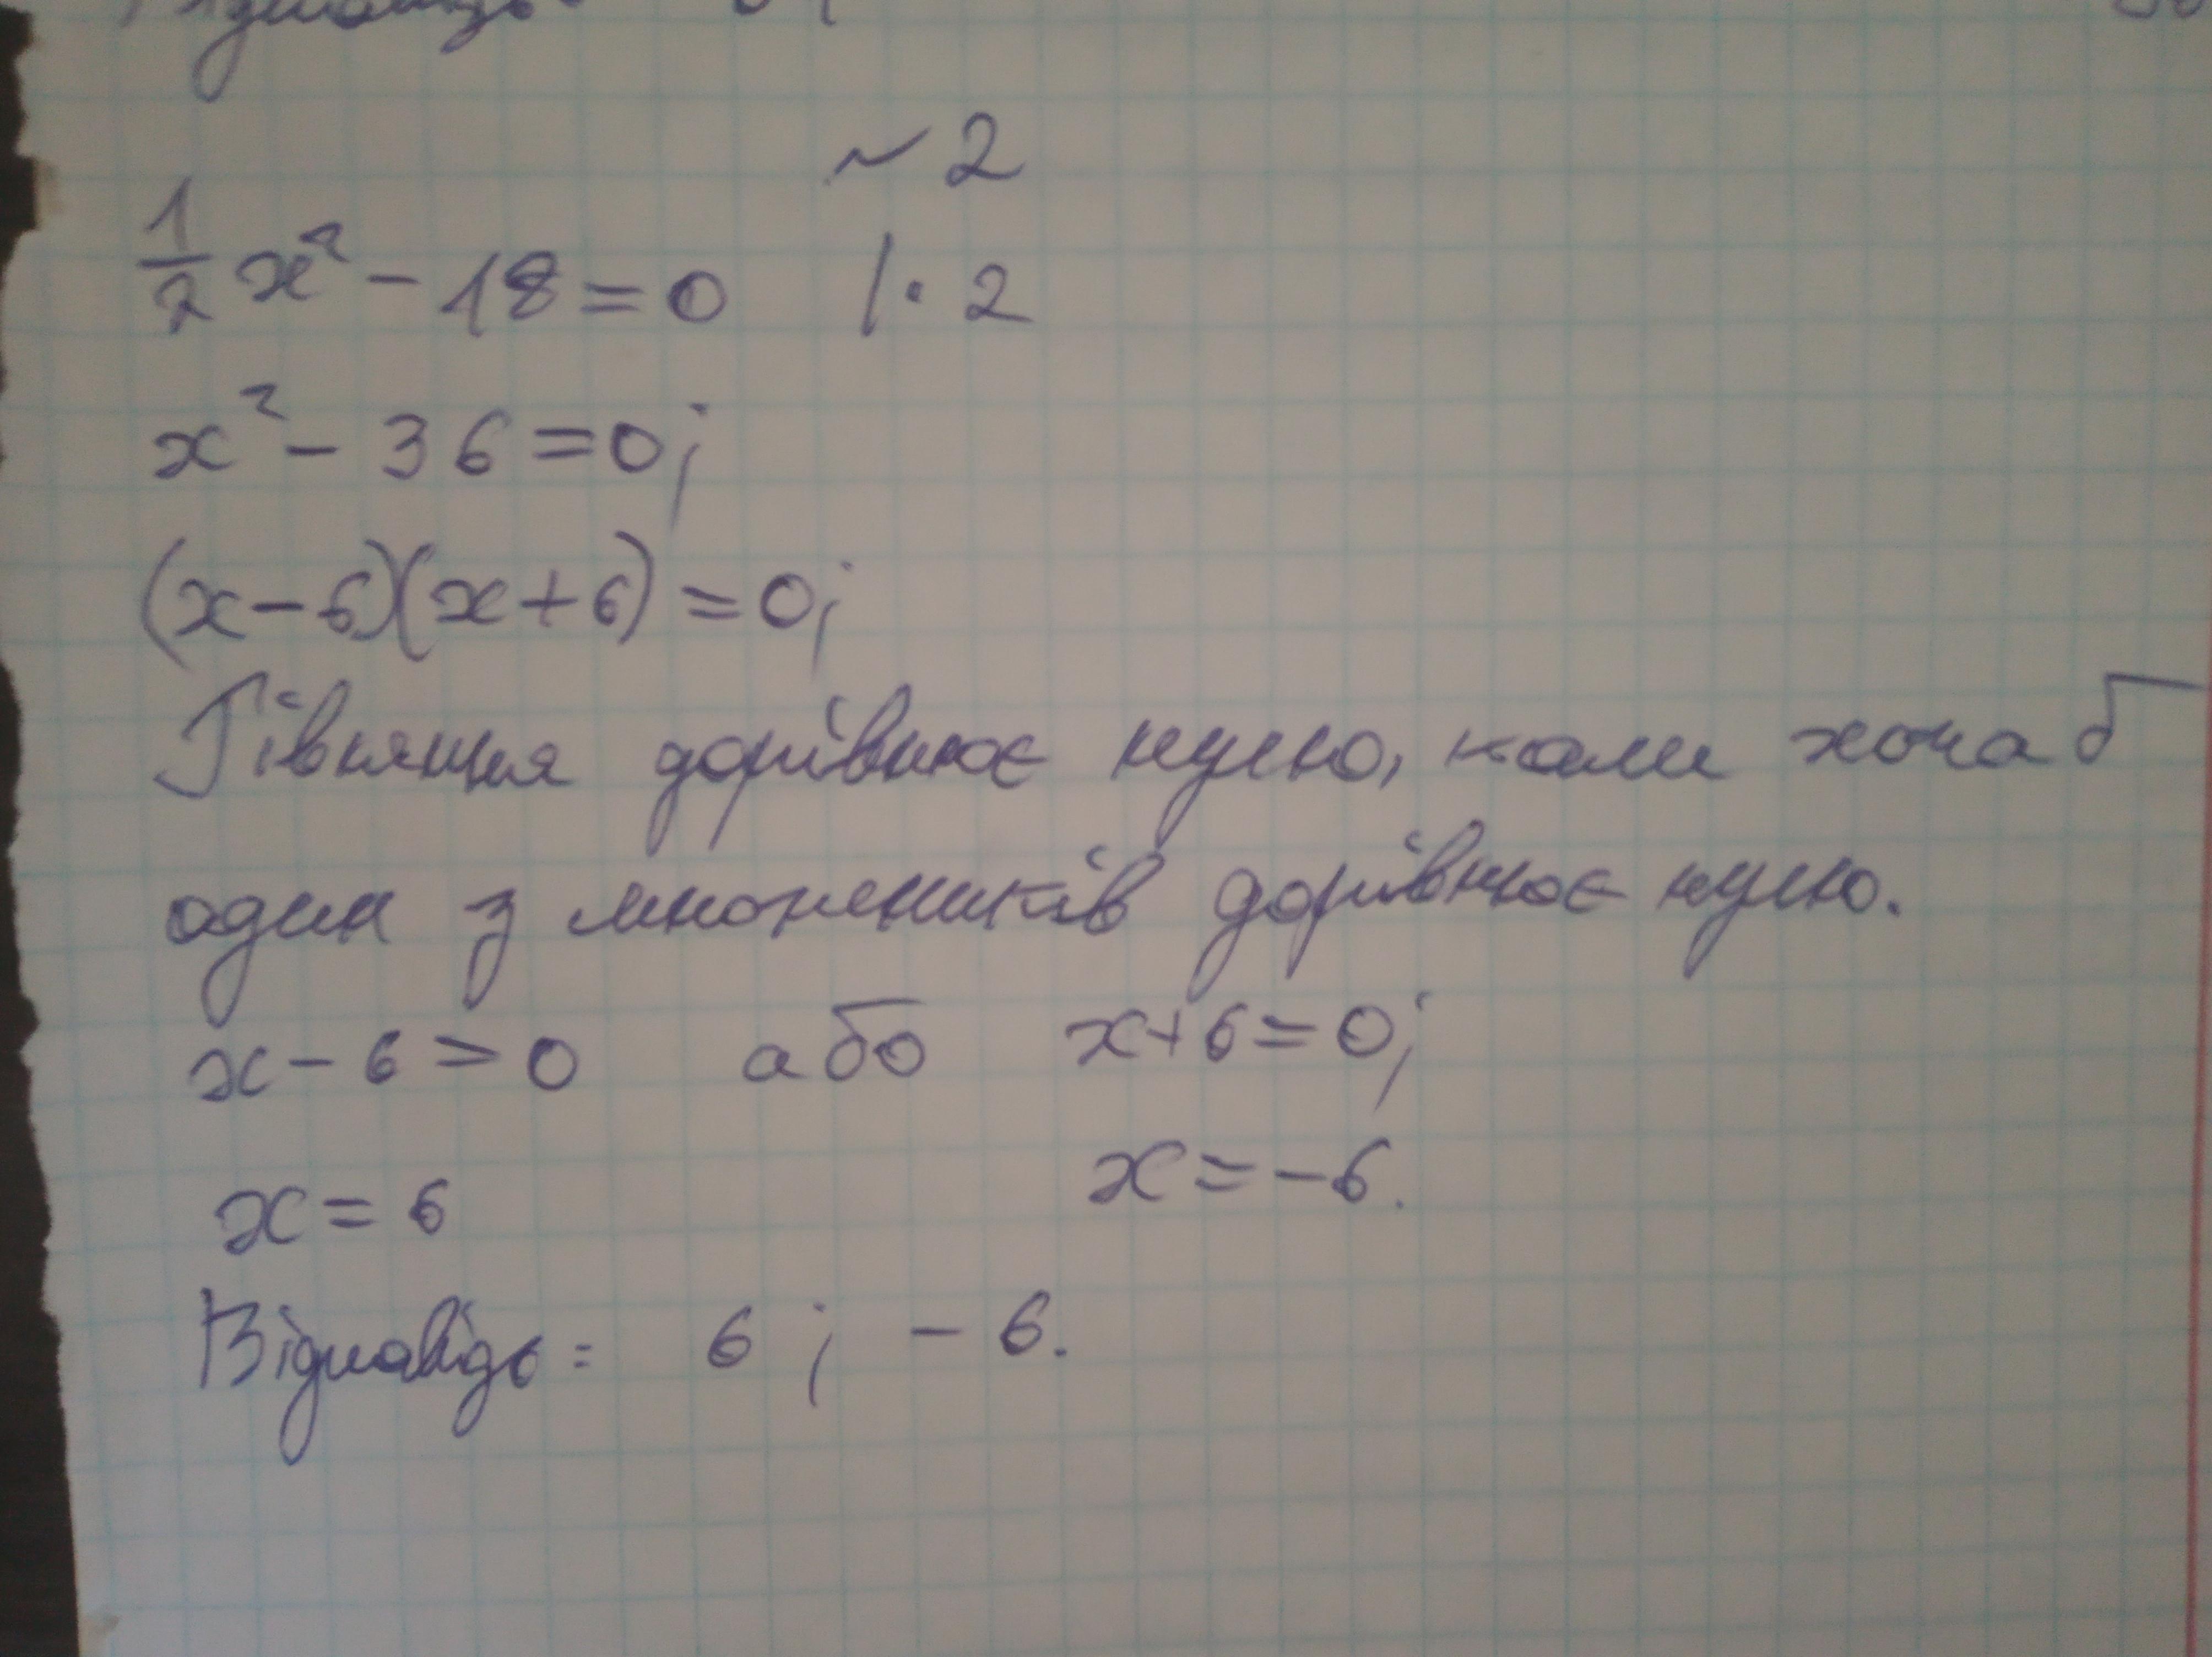 ~ 2
1/2 x² - 18 = 0 | · 2
x² - 36 = 0;
(x-6)(x+6) = 0;
Рівняння дорівнює нулю, коли хоча б
один з множників дорівнює нулю.
x - 6 = 0 або x+6 = 0;
x = 6 x = -6.
Відповідь: 6 ; - 6.